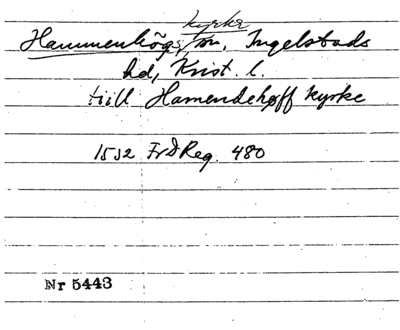 kyrka
Hammenhögs sn, Ingelstads
hd, Krist. l.
tiill Hamendehøff kyrke
1532 FrDReg. 480
Nr 5443